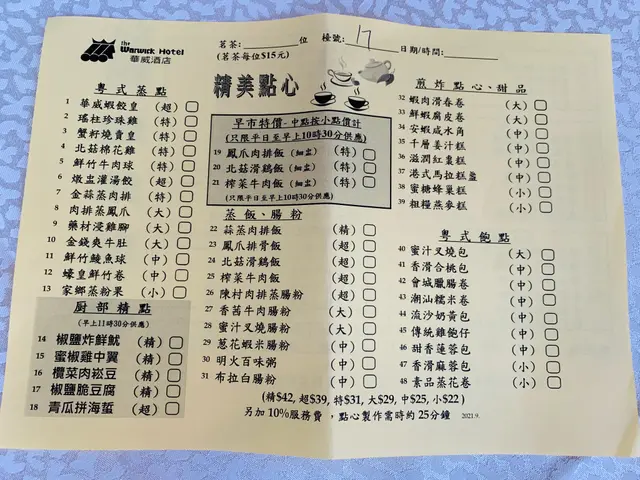 the
Warwick Hotel
華威酒店
茗茶:________位 檯號:17 日期/時間:________
(茗茶每位$15元)
精美點心
粵式蒸點
1 華威蝦餃皇 (超)
2 瑤柱珍珠雞 (特)
3 蟹籽燒賣皇 (特)
4 北菇棉花雞 (特)
5 鮮竹牛肉球 (特)
6 燉盅灌湯餃 (超)
7 金蒜蒸肉排 (特)
8 肉排蒸鳳爪 (大)
9 藥材浸雞腳 (大)
10 金錢爽牛肚 (大)
11 鮮竹鯪魚球 (中)
12 蠔皇鮮竹卷 (中)
13 家鄉蒸粉果 (小)
厨部精點
(早上11時30分供應)
14 椒鹽炸鮮魷 (精)
15 蜜椒雞中翼 (精)
16 欖菜肉崧豆 (精)
17 椒鹽脆豆腐 (精)
18 青瓜拼海蜇 (超)
早市特價-中點按小點價計
(只限平日至早上10時30分供應)
19 鳳爪肉排飯 (細盅) (特)
20 北菇滑鷄飯 (細盅) (特)
21 榨菜牛肉飯 (細盅) (特)
(只限平日至早上10時30分供應)
蒸飯、腸粉
22 蒜蒸肉排飯 (精)
23 鳳爪排骨飯 (超)
24 北菇滑鷄飯 (超)
25 榨菜牛肉飯 (超)
26 陳村肉排蒸腸粉 (超)
27 香茜牛肉腸粉 (大)
28 蜜汁叉燒腸粉 (大)
29 蔥花蝦米腸粉 (中)
30 明火百味粥 (中)
31 布拉白腸粉 (中)
煎炸點心、甜品
32 蝦肉滑春卷 (大)
33 鮮蝦腐皮卷 (大)
34 安蝦咸水角 (中)
35 千層薑汁糕 (中)
36 滋潤紅棗糕 (中)
37 港式馬拉糕盞 (中)
38 蜜糖蜂巢糕 (小)
39 粗糧燕麥糕 (小)
粵式飽點
40 蜜汁叉燒包 (大)
41 香滑合桃包 (中)
42 會城臘腸卷 (中)
43 潮汕糯米卷 (中)
44 流沙奶黃包 (中)
45 傳統雞飽仔 (中)
46 甜香蓮蓉包 (中)
47 香滑麻蓉包 (小)
48 素品蒸花卷 (小)
(精$42, 超$39, 特$31, 大$29, 中$25, 小$22 )
另加 10%服務費 , 點心製作需時約 25分鐘 2021.9.